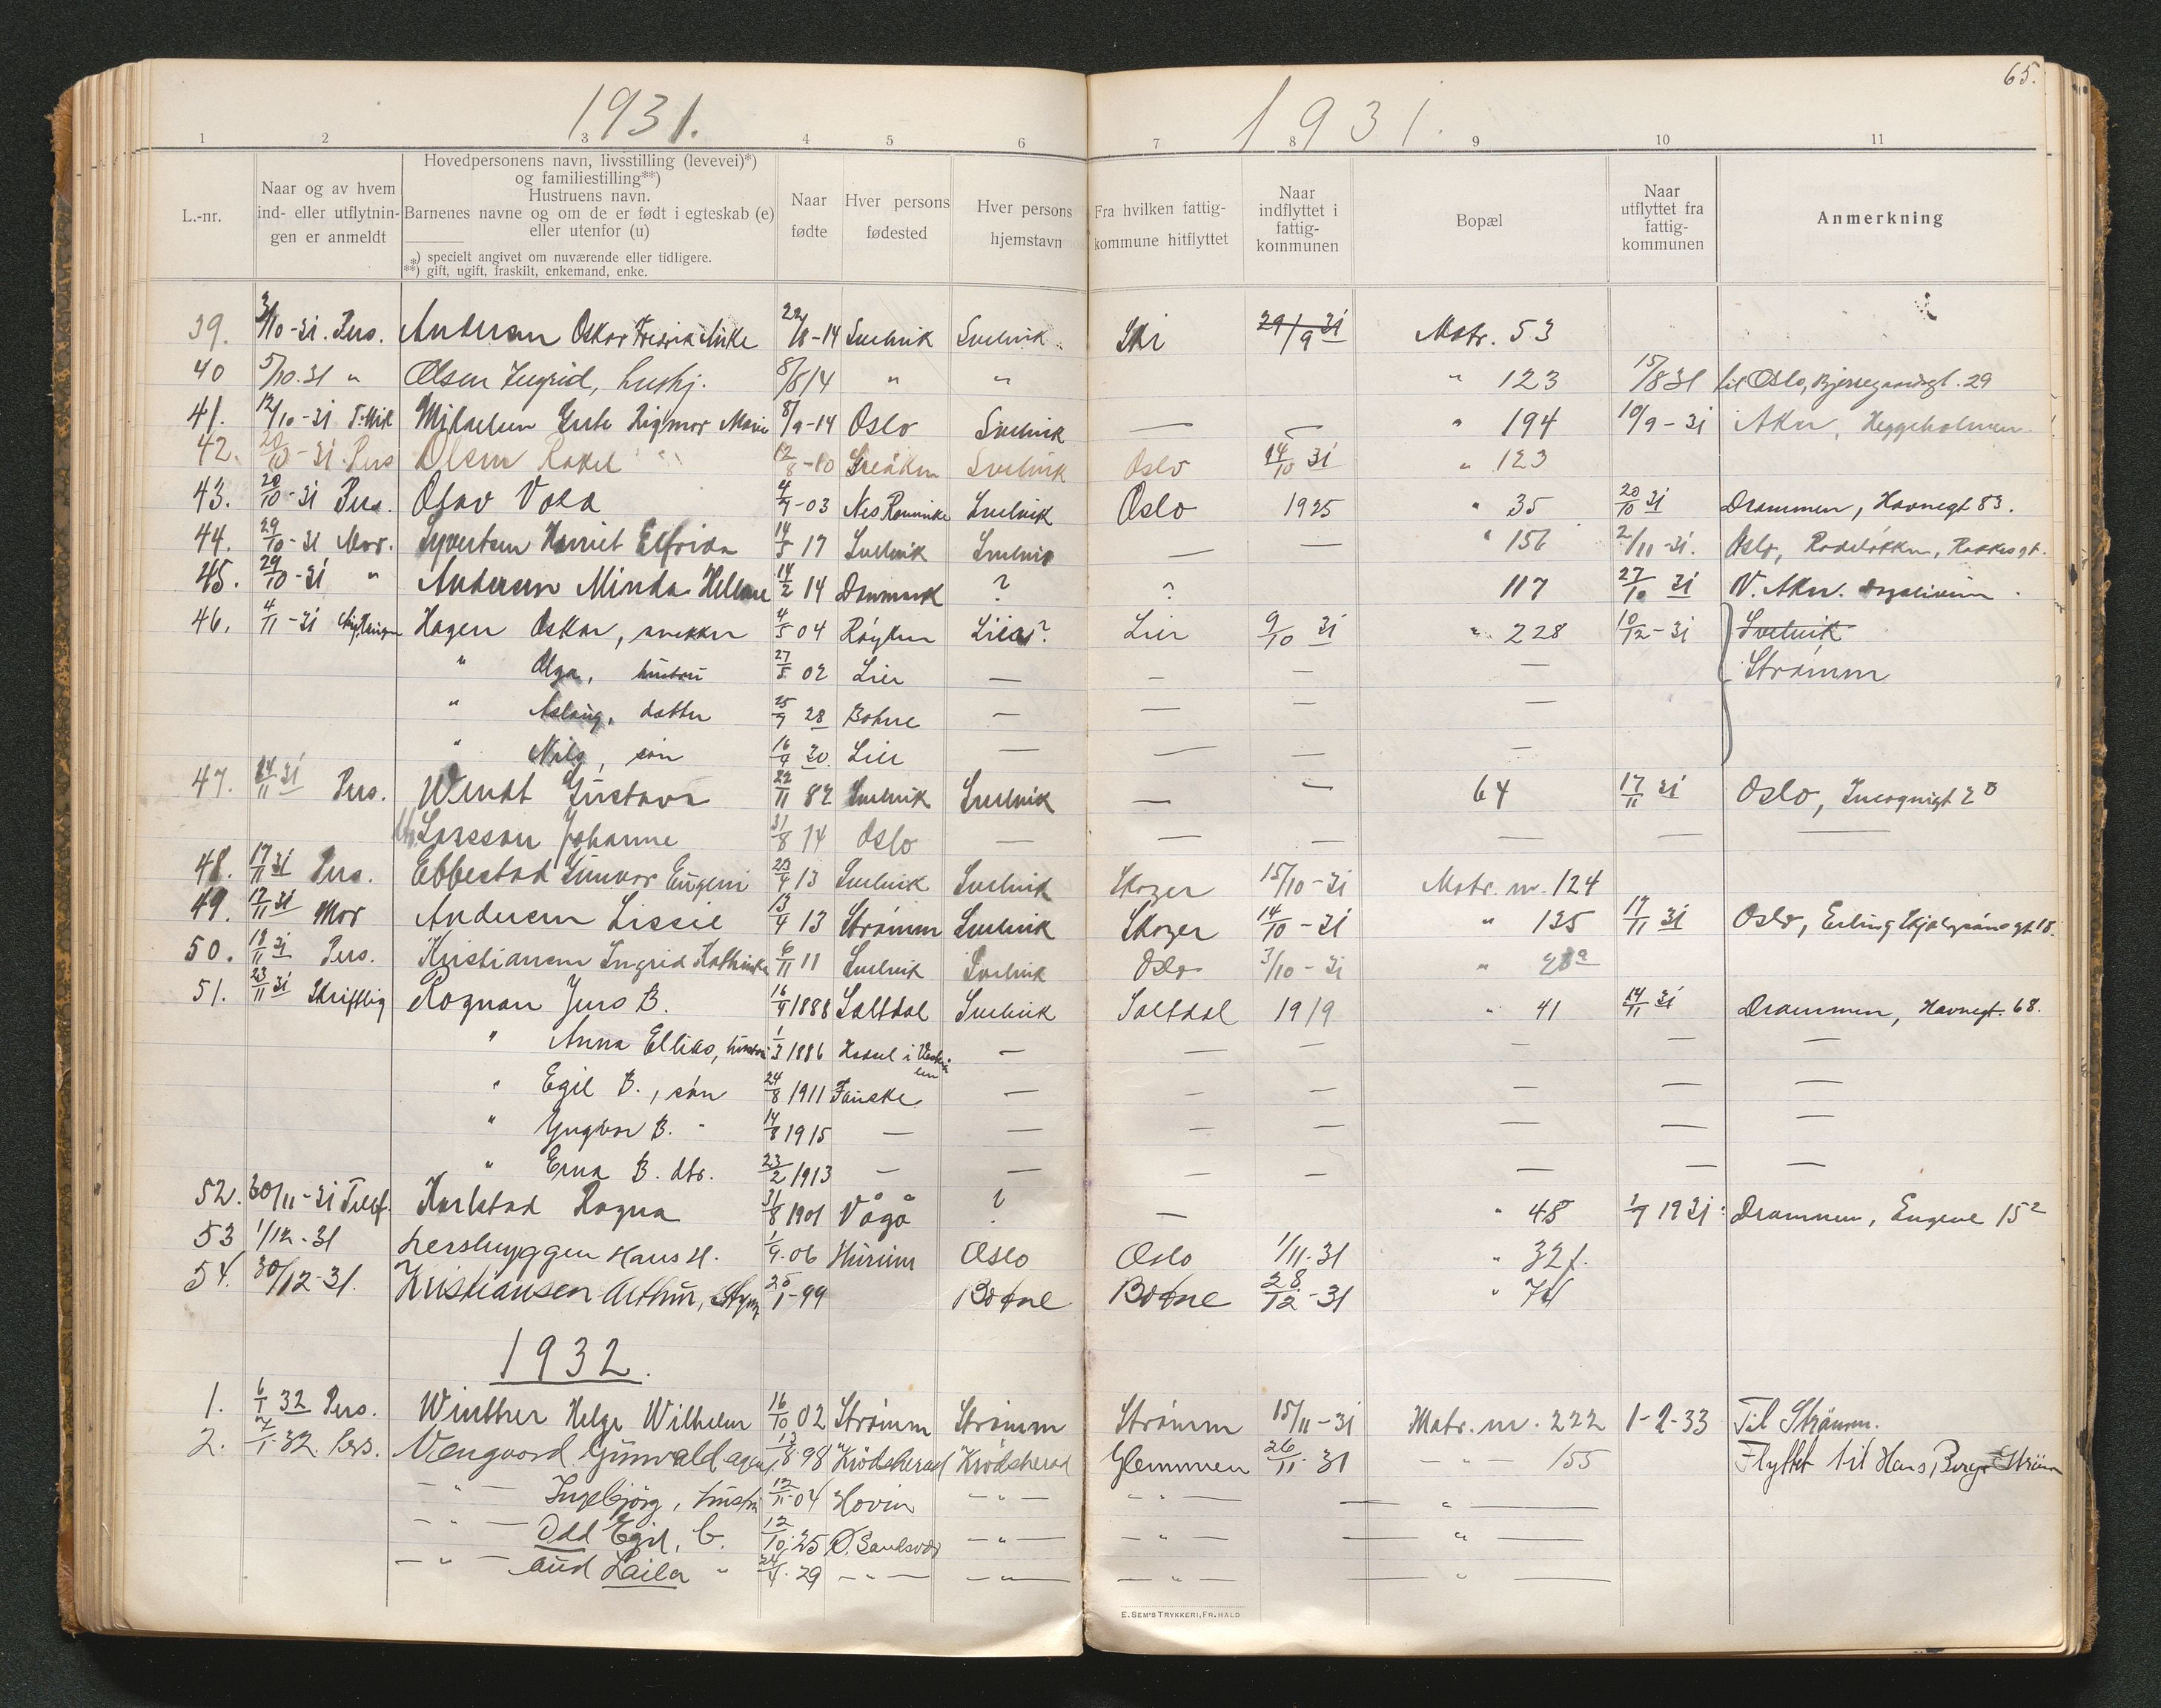 1931. 1931. 65.
1 2 3 4 5 6 7 8 9 10 11
L.-nr.
Naar og av hvem
ind- eller utflytnin-
gen er anmeldt
Hovedpersonens navn, livsstilling (levevei)*)
og familiestilling**)
Hustruens navn.
Barnenes navne og om de er født i egteskab (e)
eller utenfor (u)
*) specielt angivet om nuværende eller tidligere.
**) gift, ugift, fraskilt, enkemand, enke.
Naar
fødte
Hver persons
fødested
Hver persons
hjemstavn
Fra hvilken fattig-
kommune hitflyttet
Naar
indflyttet i
fattig-
kommunen
Bopæl
Naar
utflyttet fra
fattig-
kommunen
Anmerkning
39. 3/10-31. Pers. Andersen Oskar Fredrik 22/8-14 Svelvik Svelvik Ski 29/9 31 Matr. 53
40 5/10.31 " Olsen Ingrid, hushj. 8/8 14 " " " 123 15/8 31 til Oslo, 29
41. 12/10-31 Mikaelsen Grete Rigmor Marie 8/9-14 Oslo Svelvik — — " 194 10/9-31 Aker, Heggeholmen
42. 20/10-31. Pers Olsen Rakel 12/8-10 Greåker Svelvik Oslo 14/10 31 " 123
43. 20/10-31 Pers. Olav Vold 4/9-03 Nes Romerike Svelvik Oslo 1925 " 35 20/10 31 Drammen, Havnegt 83.
44. 29/10-31 Mor. Syvertsen Harriet Elfrida 14/5 17 Svelvik Svelvik — — " 156 2/11-31. Oslo, Rodeløkken,
45. 29/10-31 " Andersen Minda Helene 14/2 14 Danmark ? ? 117 27/10 31 V. Aker.
46. 4/11-31 Hagen Oskar, snekker 4/5 04 Røyken Lier? Lier 9/10 31 " 228 10/12-31 Svelvik
" Olga, hustru 27/5 02 Lier — — — — Strømm
" Aslaug, datter 25/9 28 Botne — — — —
" Nils, søn 16/9 30. Lier — — — —
47. 14/11 31 Pers. Wendt Gustava 22/11 82 Svelvik Svelvik — — 64 17/11 31 Oslo, Incognitgt 2
Larsson Johanne 31/8 14 Oslo — — — — — —
48. 17/11 31 Pers. Ebbestad Gunvor Eugeni 23/4 13 Svelvik Svelvik Skoger 15/10-31 Matr. nr. 124
49. 17/11 31 Mor Andersen Lissie 13/9 13 Strømm Svelvik Skoger 14/10-31 " 135 17/11 31 Oslo, Erling Skjalgsøns gt 18.
50. 18/11 31 Pers. Kristiansen Ingrid Kathinka 6/11 11 Svelvik Svelvik Oslo 3/10-31 "
51. 23/11 31 Skriftlig Rognan Jens B. 16/9 1888 Saltdal Svelvik Saltdal 1919 " 41 14/11 31 Drammen, Havnegt. 68.
" Anna Ellida, hustru 1/3 1886 Hadsel i Vesterålen — — — — — —
" Egil B., søn 24/8 1911 Fauske — — — — — —
" Yngvar B. " 14/8 1915 — — — — — — —
" Erna B. dtr. 23/2 1913 — — — — — — —
52. 30/11-31 Telef. Karlstad Ragna 31/8 1901 Vågå ? — " 48 1/9 1931 Drammen, Engene 15²
53 1/12-31 Lersbryggen Hans H. 1/9.06 Hurum Oslo Oslo 1/11.31 " 32 f.
54. 30/12-31. Kristiansen Arthur, 25/1-99 Botne Botne 28/12-31 "
1932.
1. 6/1 32 Pers. Winther Helge Wilhelm 16/10 02 Strømm Strømm Strømm 15/11-31 Matr. nr. 222 1-2-33 Til Strømm.
2. 7/1-32. Pers. Vengaard Gunvald agent 13/8.98 Krødsherad Krødsherad Glemmen 26/11.31 — " — 155 Flyttet til Hans Berge Strøm
— " — Ingebjørg, hustru 12/11-04 Hovin — " — — " — — " —
— " — Odd Egil, b. 12/10.25 — " — — " — — " —
— " — Aud Laila " 24/4.29 — " — — " — — " — — " —
E. SEM'S TRYKKERI, FR.HALD